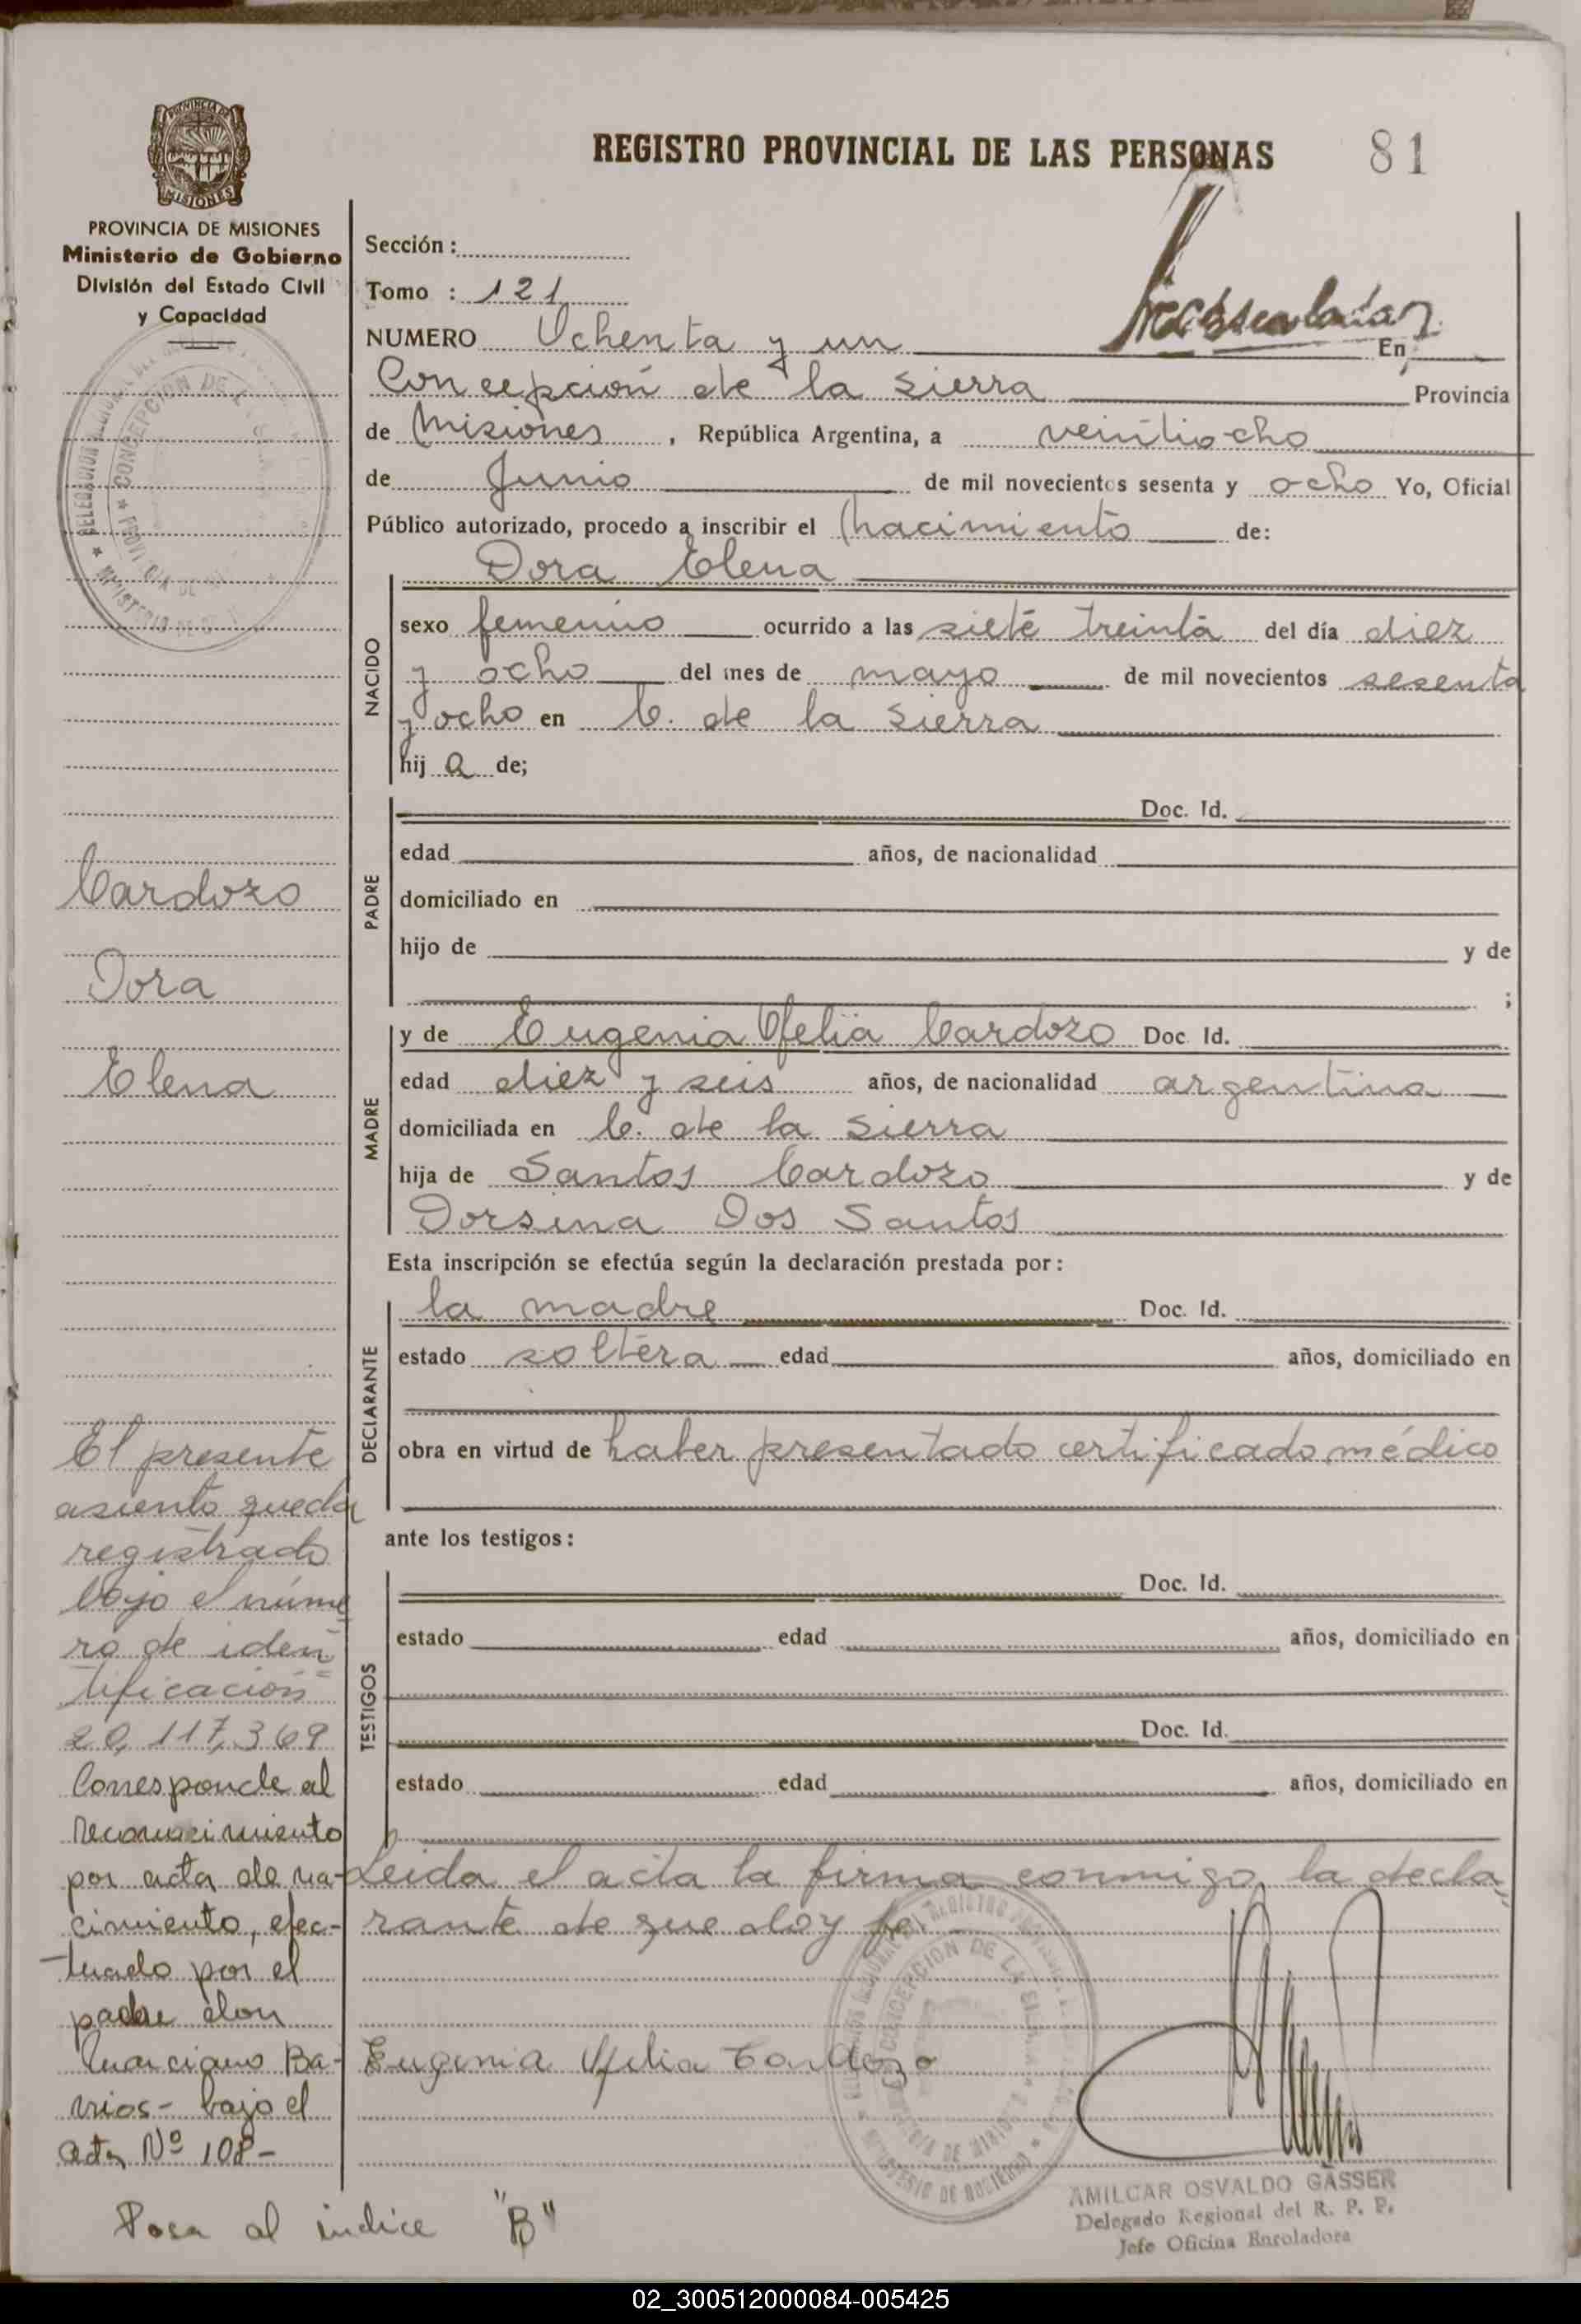 REGISTRO PROVINCIAL DE LAS PERSONAS 81
PROVINCIA DE
MISIONES
PROVINCIA DE MISIONES
Ministerio de Gobierno
División del Estado Civil
y Capacidad
Sección :
Tomo : 121
NUMERO Ochenta y un En
Concepción de la Sierra Provincia
de Misiones , República Argentina, a veintiocho
de Junio de mil novecientos sesenta y ocho Yo, Oficial
Público autorizado, procedo a inscribir el nacimiento de:
Dora Elena
NACIDO
sexo femenino ocurrido a las siete treinta del día diez
y ocho del mes de mayo de mil novecientos sesenta
y ocho en C. de la Sierra
hij a de;
PADRE
Doc. Id.
edad años, de nacionalidad
domiciliado en
hijo de y de
;
MADRE
y de Eugenia Ofelia Cardozo Doc. Id.
edad diez y seis años, de nacionalidad argentina
domiciliada en C. de la Sierra
hija de Santos Cardozo y de
Dorsina Dos Santos
Esta inscripción se efectúa según la declaración prestada por:
DECLARANTE
la madre Doc. Id.
estado soltera edad años, domiciliado en
obra en virtud de haber presentado certificado médico
ante los testigos:
TESTIGOS
Doc. Id.
estado edad años, domiciliado en
Doc. Id.
estado edad años, domiciliado en
Leida el acta la firma conmigo la decla
rante de que doy fe.
Eugenia Ofelia Cardozo
AMILCAR OSVALDO GÄSSER
Delegado Regional del R. P. P.
Jefe Oficina Enroladora
Cardozo
Dora
Elena
El presente
asiento queda
registrado
bajo el núme
ro de iden
tificación
20,117,369
Corresponde al
reconocimiento
por acta de na-
cimiento, efec-
tuado por el
padre don
Marciano Ba-
rrios - bajo el
acta Nº 108-
Pasa al indice "B"
02_300512000084-005425